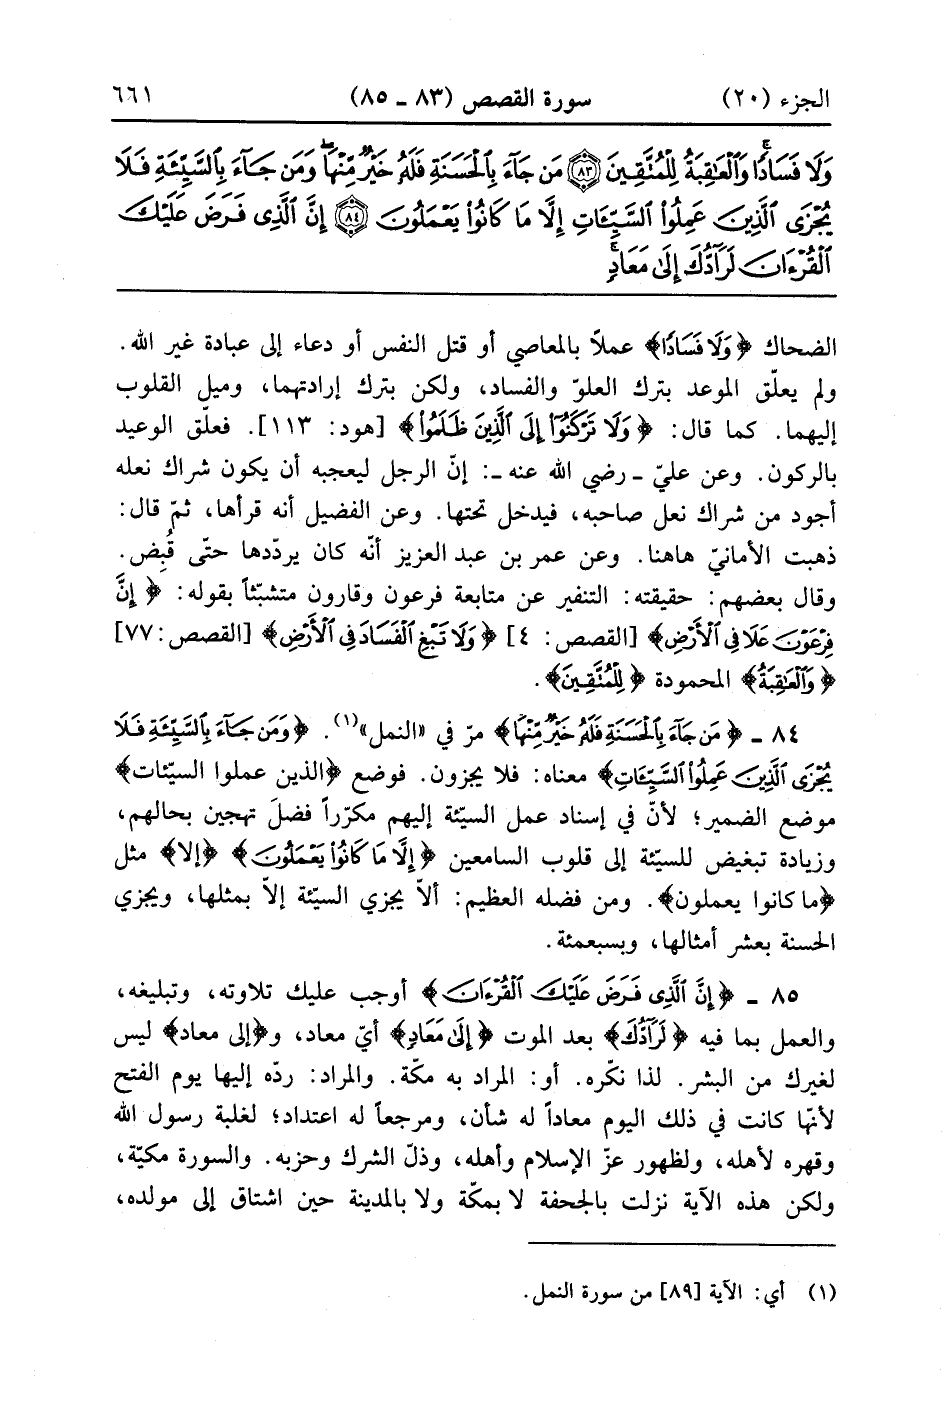 الجزء (٢٠) سورة القصص (٨٣ - ٨٥) ٦٦١
وَلَا فَسَادًا وَٱلْعَٰقِبَةُ لِلْمُتَّقِينَ ﴿٨٣﴾ مَن جَآءَ بِٱلْحَسَنَةِ فَلَهُۥ خَيْرٌ مِّنْهَا وَمَن جَآءَ بِٱلسَّيِّئَةِ فَلَا
يُجْزَى ٱلَّذِينَ عَمِلُوا۟ ٱلسَّيِّـَٔاتِ إِلَّا مَا كَانُوا۟ يَعْمَلُونَ ﴿٨٤﴾ إِنَّ ٱلَّذِى فَرَضَ عَلَيْكَ
ٱلْقُرْءَانَ لَرَآدُّكَ إِلَىٰ مَعَادٍ
الضحاك ﴿وَلَا فَسَادًا﴾ عملاً بالمعاصي أو قتل النفس أو دعاء إلى عبادة غير الله.
ولم يعلّق الموعد بترك العلوّ والفساد، ولكن بترك إرادتهما، وميل القلوب
إليهما. كما قال: ﴿وَلَا تَرْكَنُوٓا۟ إِلَى ٱلَّذِينَ ظَلَمُوا۟﴾ [هود: ١١٣]. فعلّق الوعيد
بالركون. وعن عليّ - رضي الله عنه -: إنّ الرجل ليعجبه أن يكون شراك نعله
أجود من شراك نعل صاحبه، فيدخل تحتها. وعن الفضيل أنه قرأها، ثمّ قال:
ذهبت الأمانيّ هاهنا. وعن عمر بن عبد العزيز أنّه كان يردّدها حتّى قُبِض.
وقال بعضهم: حقيقته: التنفير عن متابعة فرعون وقارون متشبّثاً بقوله: ﴿إِنَّ
فِرْعَوْنَ عَلَا فِى ٱلْأَرْضِ﴾ [القصص: ٤] ﴿وَلَا تَبْغِ ٱلْفَسَادَ فِى ٱلْأَرْضِ﴾ [القصص: ٧٧]
﴿وَٱلْعَٰقِبَةُ﴾ المحمودة ﴿لِلْمُتَّقِينَ﴾.
٨٤ - ﴿مَن جَآءَ بِٱلْحَسَنَةِ فَلَهُۥ خَيْرٌ مِّنْهَا﴾ مرّ في «النمل»(١). ﴿وَمَن جَآءَ بِٱلسَّيِّئَةِ فَلَا
يُجْزَى ٱلَّذِينَ عَمِلُوا۟ ٱلسَّيِّـَٔاتِ﴾ معناه: فلا يجزون. فوضع ﴿الذين عملوا السيّئات﴾
موضع الضمير؛ لأنّ في إسناد عمل السيّئة إليهم مكرّراً فضلَ تهجين بحالهم،
وزيادة تبغيض للسيّئة إلى قلوب السامعين ﴿إِلَّا مَا كَانُوا۟ يَعْمَلُونَ﴾ ﴿إلا﴾ مثل
﴿ما كانوا يعملون﴾. ومن فضله العظيم: ألاّ يجزي السيّئة إلاّ بمثلها، ويجزي
الحسنة بعشر أمثالها، وبسبعمئة.
٨٥ - ﴿إِنَّ ٱلَّذِى فَرَضَ عَلَيْكَ ٱلْقُرْءَانَ﴾ أوجب عليك تلاوته، وتبليغه،
والعمل بما فيه ﴿لَرَآدُّكَ﴾ بعد الموت ﴿إِلَىٰ مَعَادٍ﴾ أيّ معاد، و﴿إلى معاد﴾ ليس
لغيرك من البشر. لذا نكّره. أو: المراد به مكّة. والمراد: ردّه إليها يوم الفتح
لأنّها كانت في ذلك اليوم معاداً له شأن، ومرجعاً له اعتداد؛ لغلبة رسول الله
وقهره لأهله، ولظهور عزّ الإسلام وأهله، وذلّ الشرك وحزبه. والسورة مكيّة،
ولكن هذه الآية نزلت بالجحفة لا بمكّة ولا بالمدينة حين اشتاق إلى مولده،
(١) أي: الآية [٨٩] من سورة النمل.